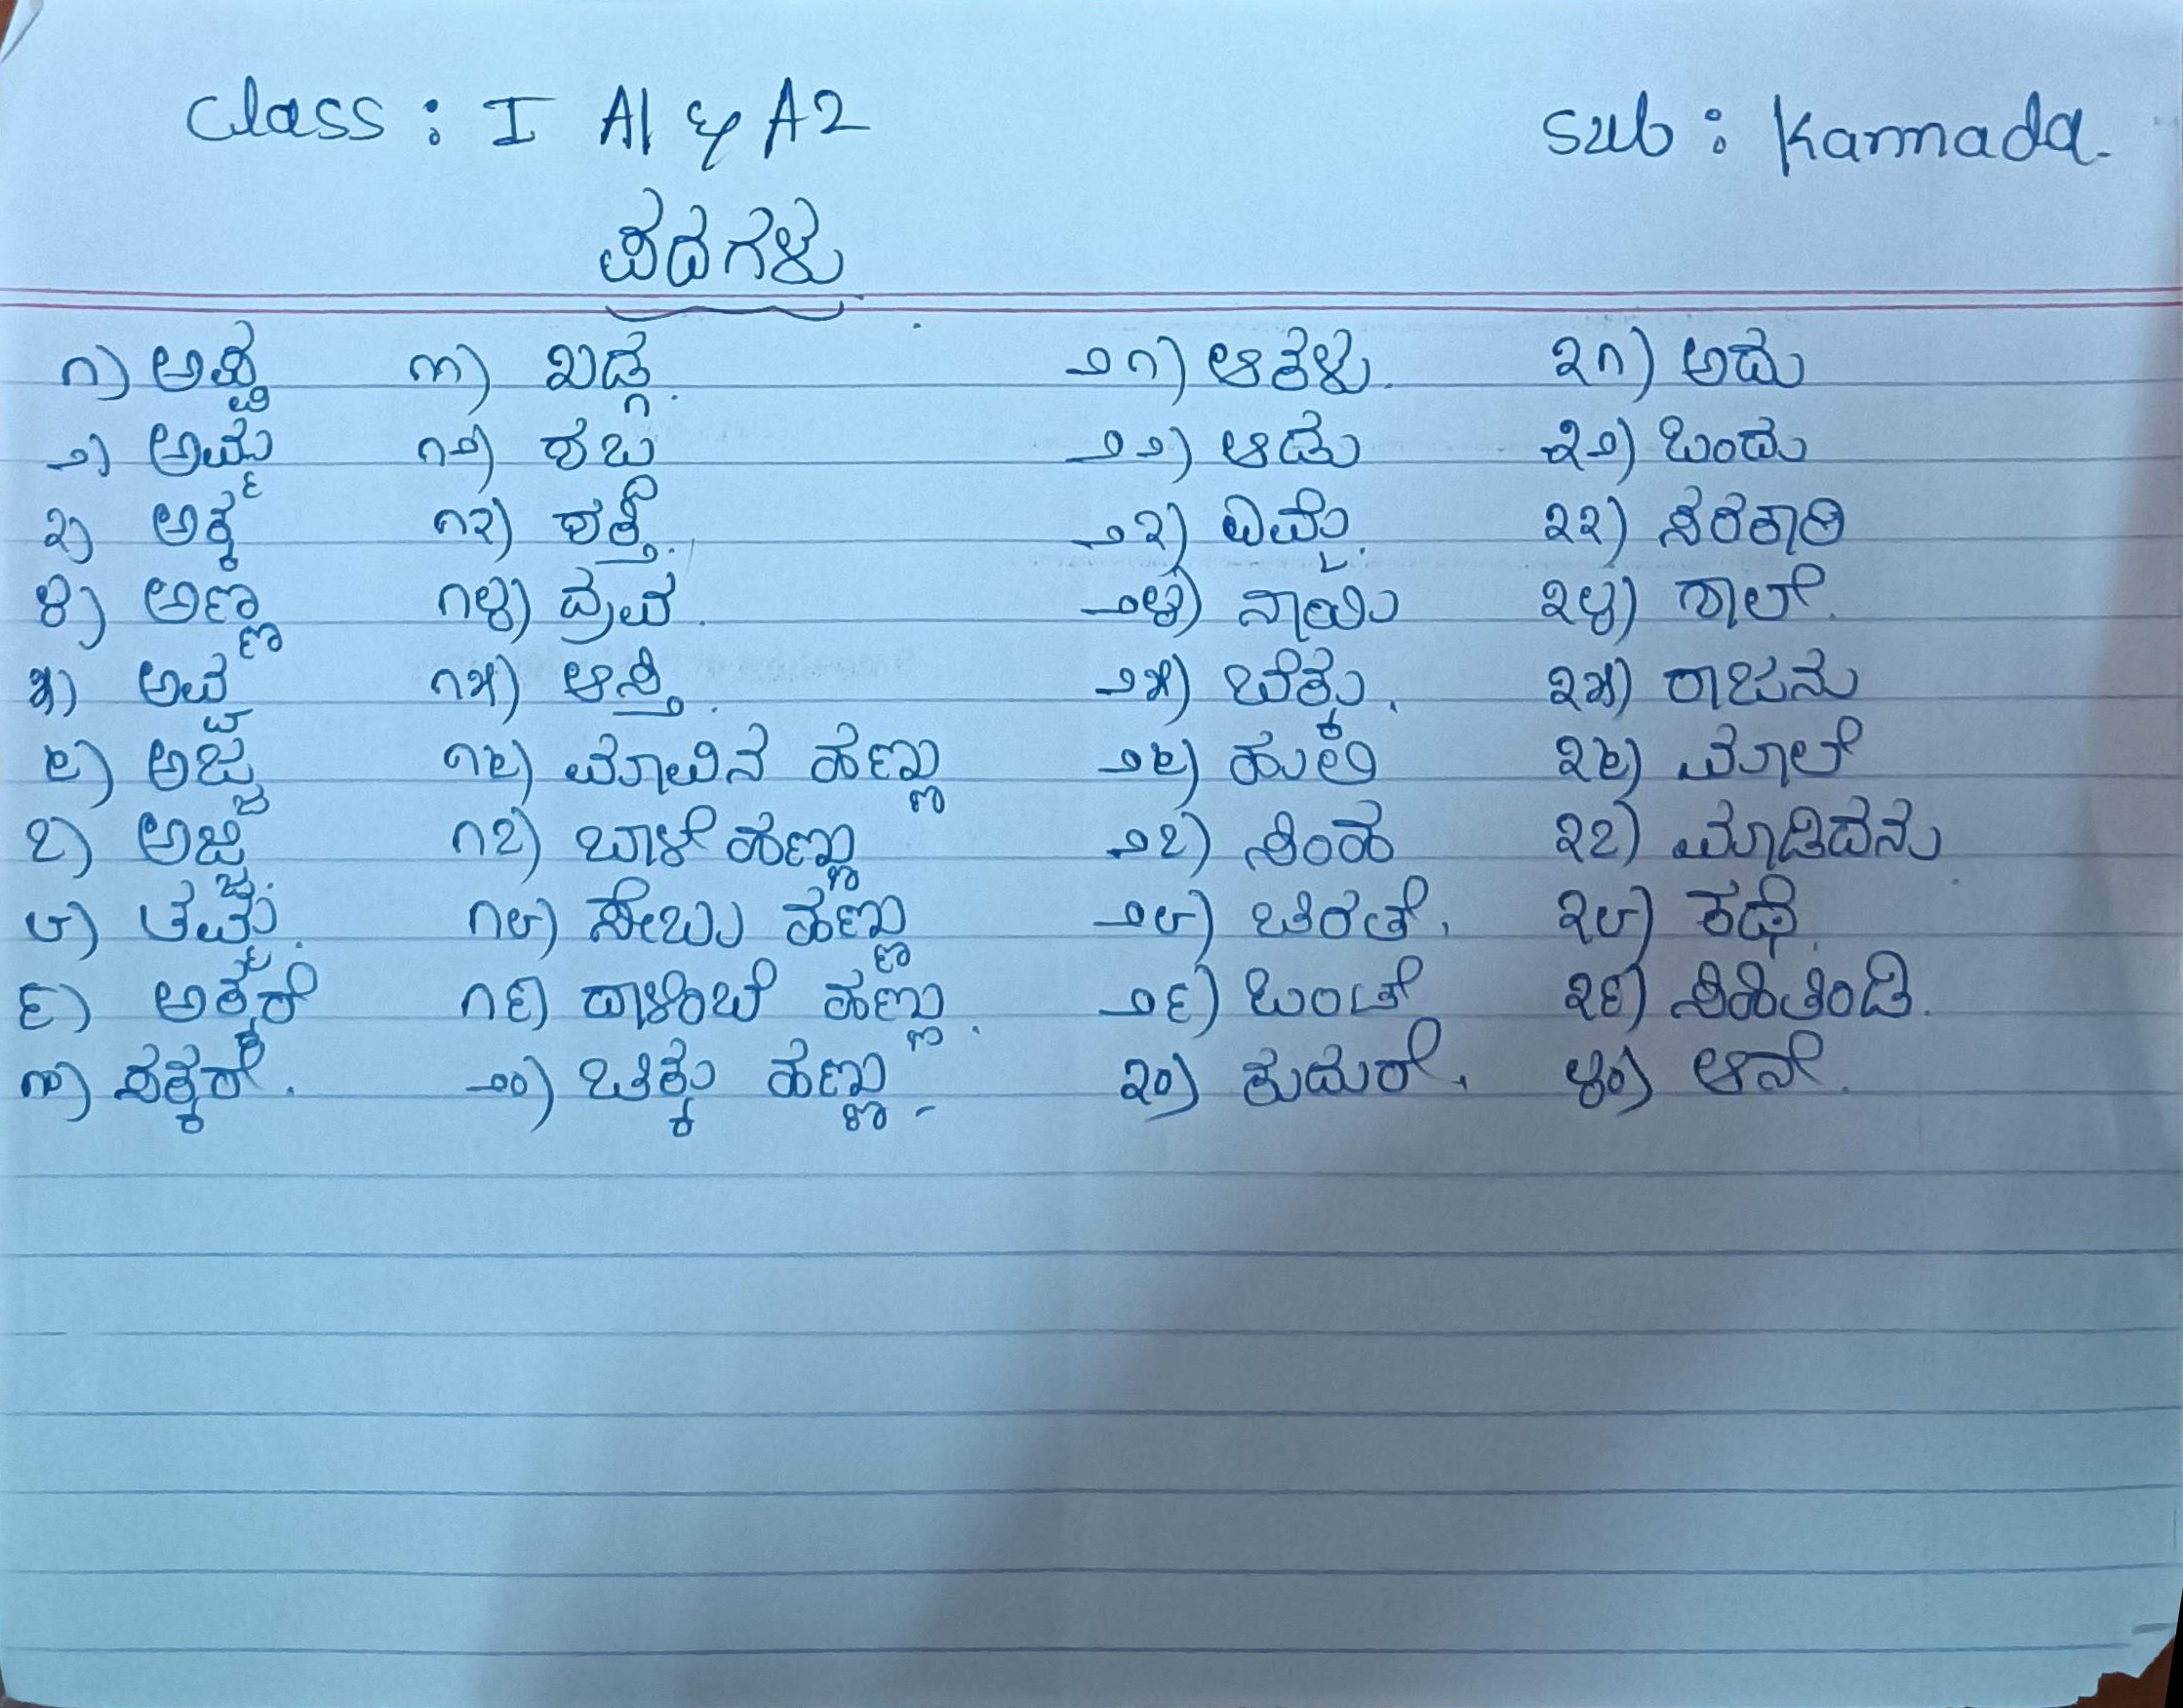 Class : I A1 & A2 Sub : Kannada.
ಪದಗಳು
೧) ಅಪ್ಪ ೧೧) ಖಡ್ಗ. ೨೧) ಆಕಳು. ೩೧) ಅದು
೨) ಅಮ್ಮ ೧೨) ಶಬ್ದ ೨೨) ಆಡು ೩೨) ಒಂದು
೩) ಅಕ್ಕ ೧೩) ಶಕ್ತಿ. ೨೩) ಎಮ್ಮೆ. ೩೩) ಸರಕಾರಿ
೪) ಅಣ್ಣ ೧೪) ದ್ರವ. ೨೪) ನಾಯಿ ೩೪) ಶಾಲೆ.
೫) ಅವ್ವ ೧೫) ಆಸ್ತಿ. ೨೫) ಬೆಕ್ಕು. ೩೫) ರಾಜನು
೬) ಅಜ್ಜ ೧೬) ಮಾವಿನ ಹಣ್ಣು ೨೬) ಹುಲಿ ೩೬) ಮಾಲೆ
೭) ಅಜ್ಜಿ. ೧೭) ಬಾಳೆ ಹಣ್ಣು ೨೭) ಸಿಂಹ ೩೭) ಮಾಡಿದೆನು.
೮) ತಮ್ಮ. ೧೮) ಸೇಬು ಹಣ್ಣು ೨೮) ಚಿರತೆ. ೩೮) ಕಥೆ.
೯) ಅಕ್ಕರೆ ೧೯) ದಾಳಿಂಬೆ ಹಣ್ಣು. ೨೯) ಒಂಟೆ ೩೯) ಸಿಹಿತಿಂಡಿ.
೧೦) ಸಕ್ಕರೆ. ೨೦) ಚಿಕ್ಕು ಹಣ್ಣು. ೩೦) ಕುದುರೆ. ೪೦) ಆನೆ.